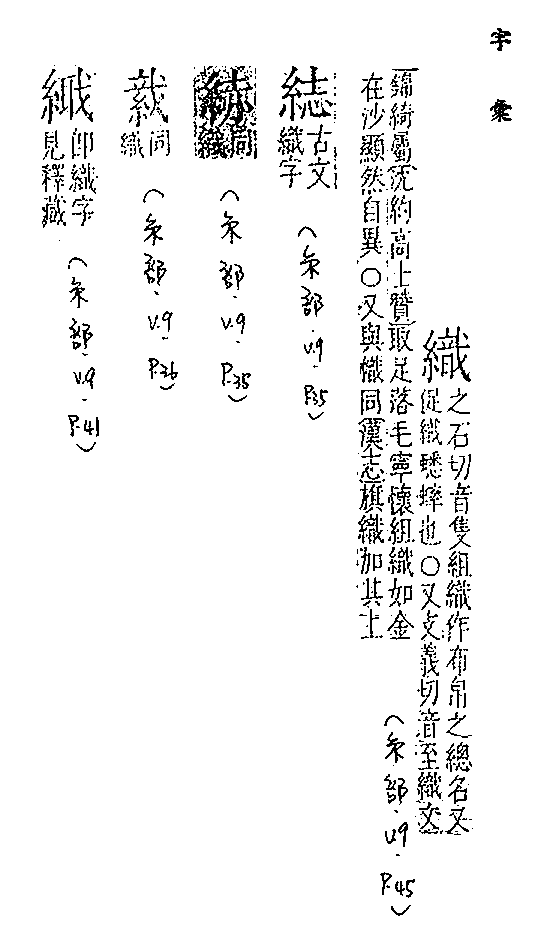 字彙
織
之石切音隻組織作布帛之總名又
促織蟋蟀也○又支義切音至織文
錦綺屬沈約高士贊取足落毛寧懷組織如金
在沙顯然自異○又與幟同漢志旗織加其上
(糸部.v.9.P.45)
古文
織字
(糸部.v.9.P.35)
同
織
(糸部.v.9.P.35)
同
織
(糸部.v.9.P.36)
即織字
見釋藏
(糸部.v.9.P.41)